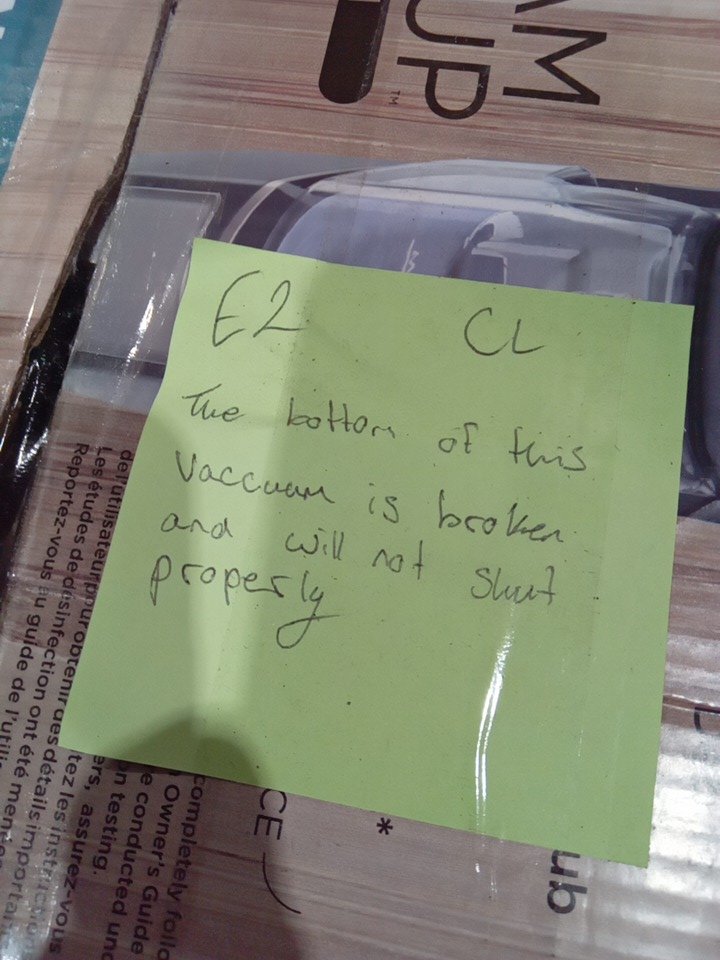 AM
UP™
E2 CL
The bottom of this
Vaccuum is broken
and will not shut
properly
de l'utilisateur pour obtenir des détails importan
Les études de désinfection ont été menées
Reportez-vous au guide de l'utilis
tez les instruction
ers, assurez-vous
on testing.
e conducted und
Owner's Guide
completely follo
CE
*
ub